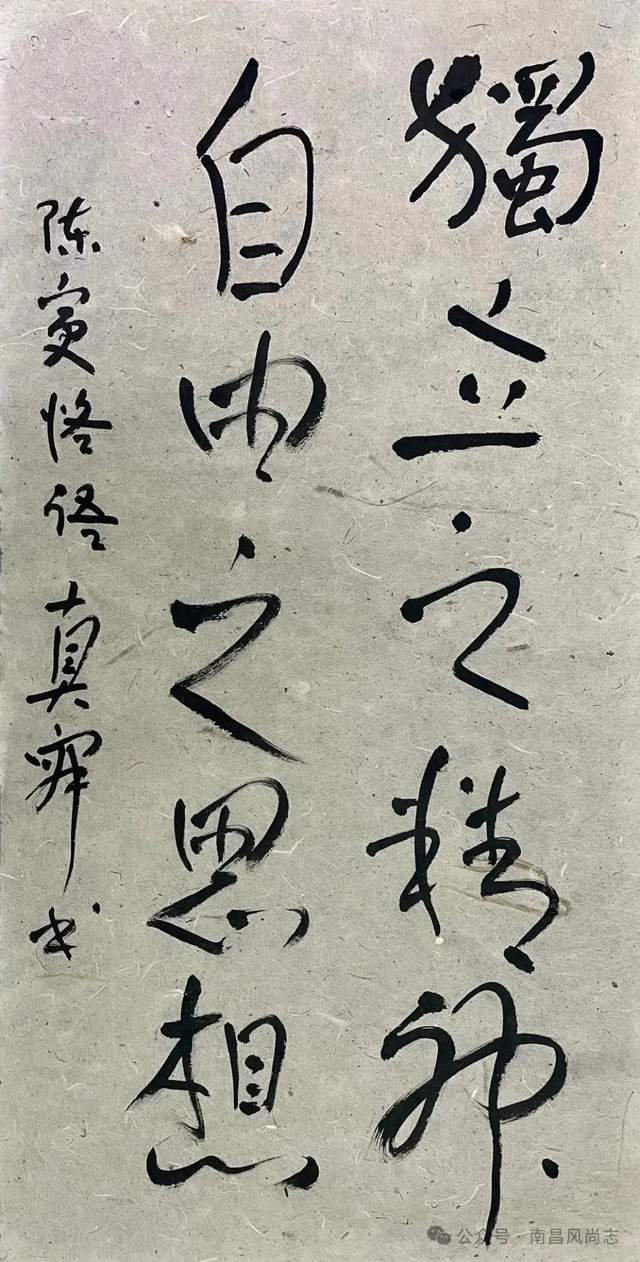 獨立之精神
自由之思想
陈寅恪语 真宰书
公众号·南昌风尚志